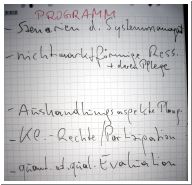 PROGRAMM
- Szenarien d. Systemmanagem
- nichtmarktförmige Ress.
+ deren Pflege
- Aushandlungsaspekte Planung
- KP-Rechte/Partizipation
- quant. d. qual. Evaluation